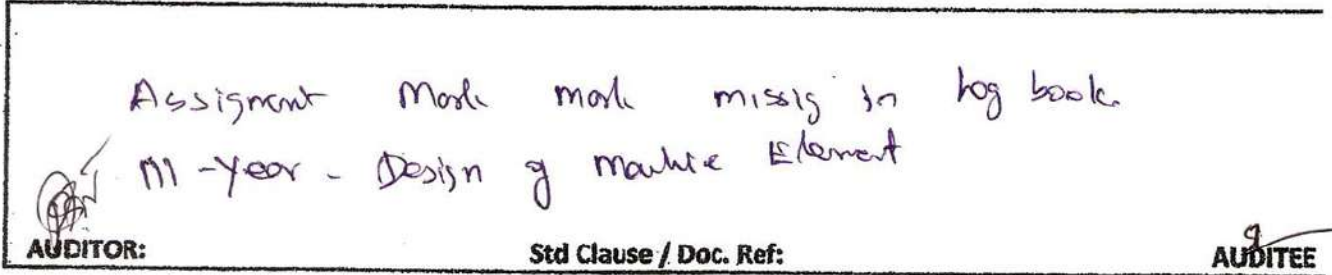 Assignment Mark mark missig in log book.
III - Year - Design of Machine Element
AUDITOR: Std Clause / Doc. Ref: AUDITEE